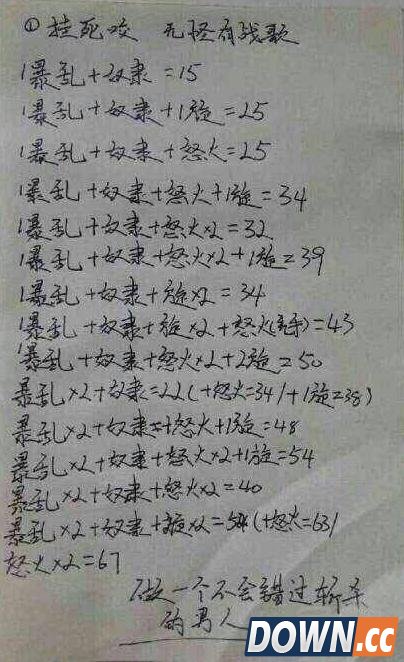 ① 挂死咬 无怪有战歌
1暴乱+奴隶=15
1暴乱+奴隶+1旋=25
1暴乱+奴隶+怒火=25
1暴乱+奴隶+怒火+1旋=34
1暴乱+奴隶+怒火×2=32
1暴乱+奴隶+怒火×2+1旋=39
1暴乱+奴隶+旋×2=34
1暴乱+奴隶+旋×2+怒火()=43
1暴乱+奴隶+怒火×2+2旋=50
暴乱×2+奴隶=22(+怒火=34/+1旋=38)
暴乱×2+奴隶+怒火+1旋=48
暴乱×2+奴隶+怒火×2+1旋=54
暴乱×2+奴隶+怒火×2=40
暴乱×2+奴隶+旋×2=54(+怒火=63/
怒火×2=67
做一个不会错过斩杀
的男人
DOWN.cc